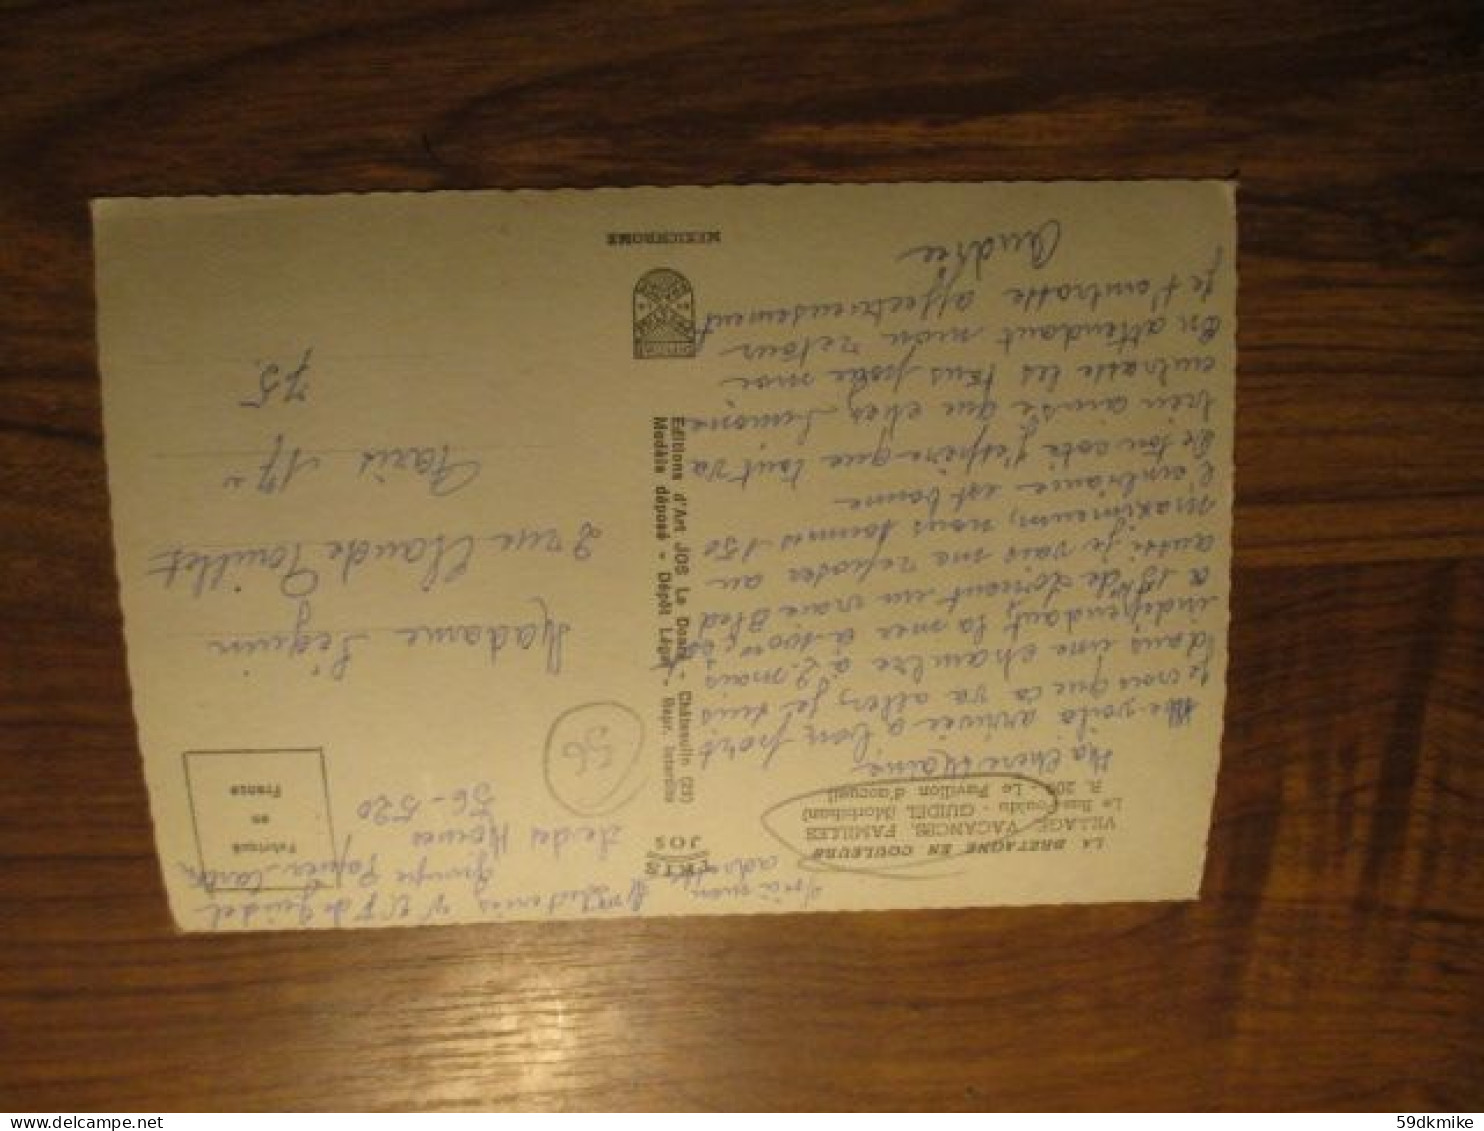 Voici mon
adresse
M Séguin, V V F de Guidel
groupe Papier-Carton
56-520
LA BRETAGNE EN COULEURS
VILLAGE, VACANCES, FAMILLES
Le Bas Pouldu - GUIDEL (Morbihan)
R. 206 - Le Pavillon d'accueil
Ma chère Maine
Me voilà arrivée à bon port
Je crois que ça va aller, je suis
dans une chambre à 2 mais
indépendant, la mer à 100m
à 15km de Lorient un vrai Bled
aussi je vais me reposer au
maximum, nous sommes 150
l'ambiance est bonne
De ton coté j'espère que tout va
bien ainsi que chez Simone
embrasse les tous pour moi
En attendant mon retour
je t'embrasse affectueusement
Andrée
ARTS
JOS
Editions d'Art JOS Le Doaré - Châteaulin (29)
Modèle déposé - Dépôt Légal - Repr. Interdite
MEXICHROME
Fabriqué
en
France
56
Madame Séguin
2 rue Claude Pouillet
Paris 17e
75
59dkmike